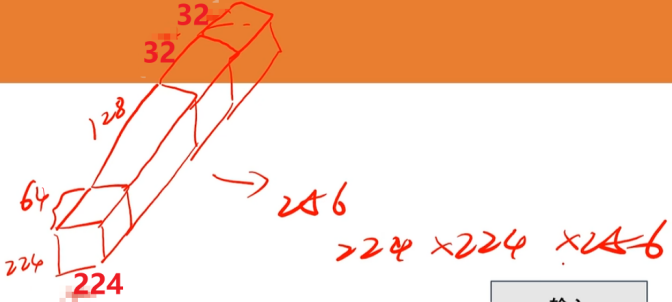 32
32
128
64
224
224
→ 256
224 ×224 ×256
输入